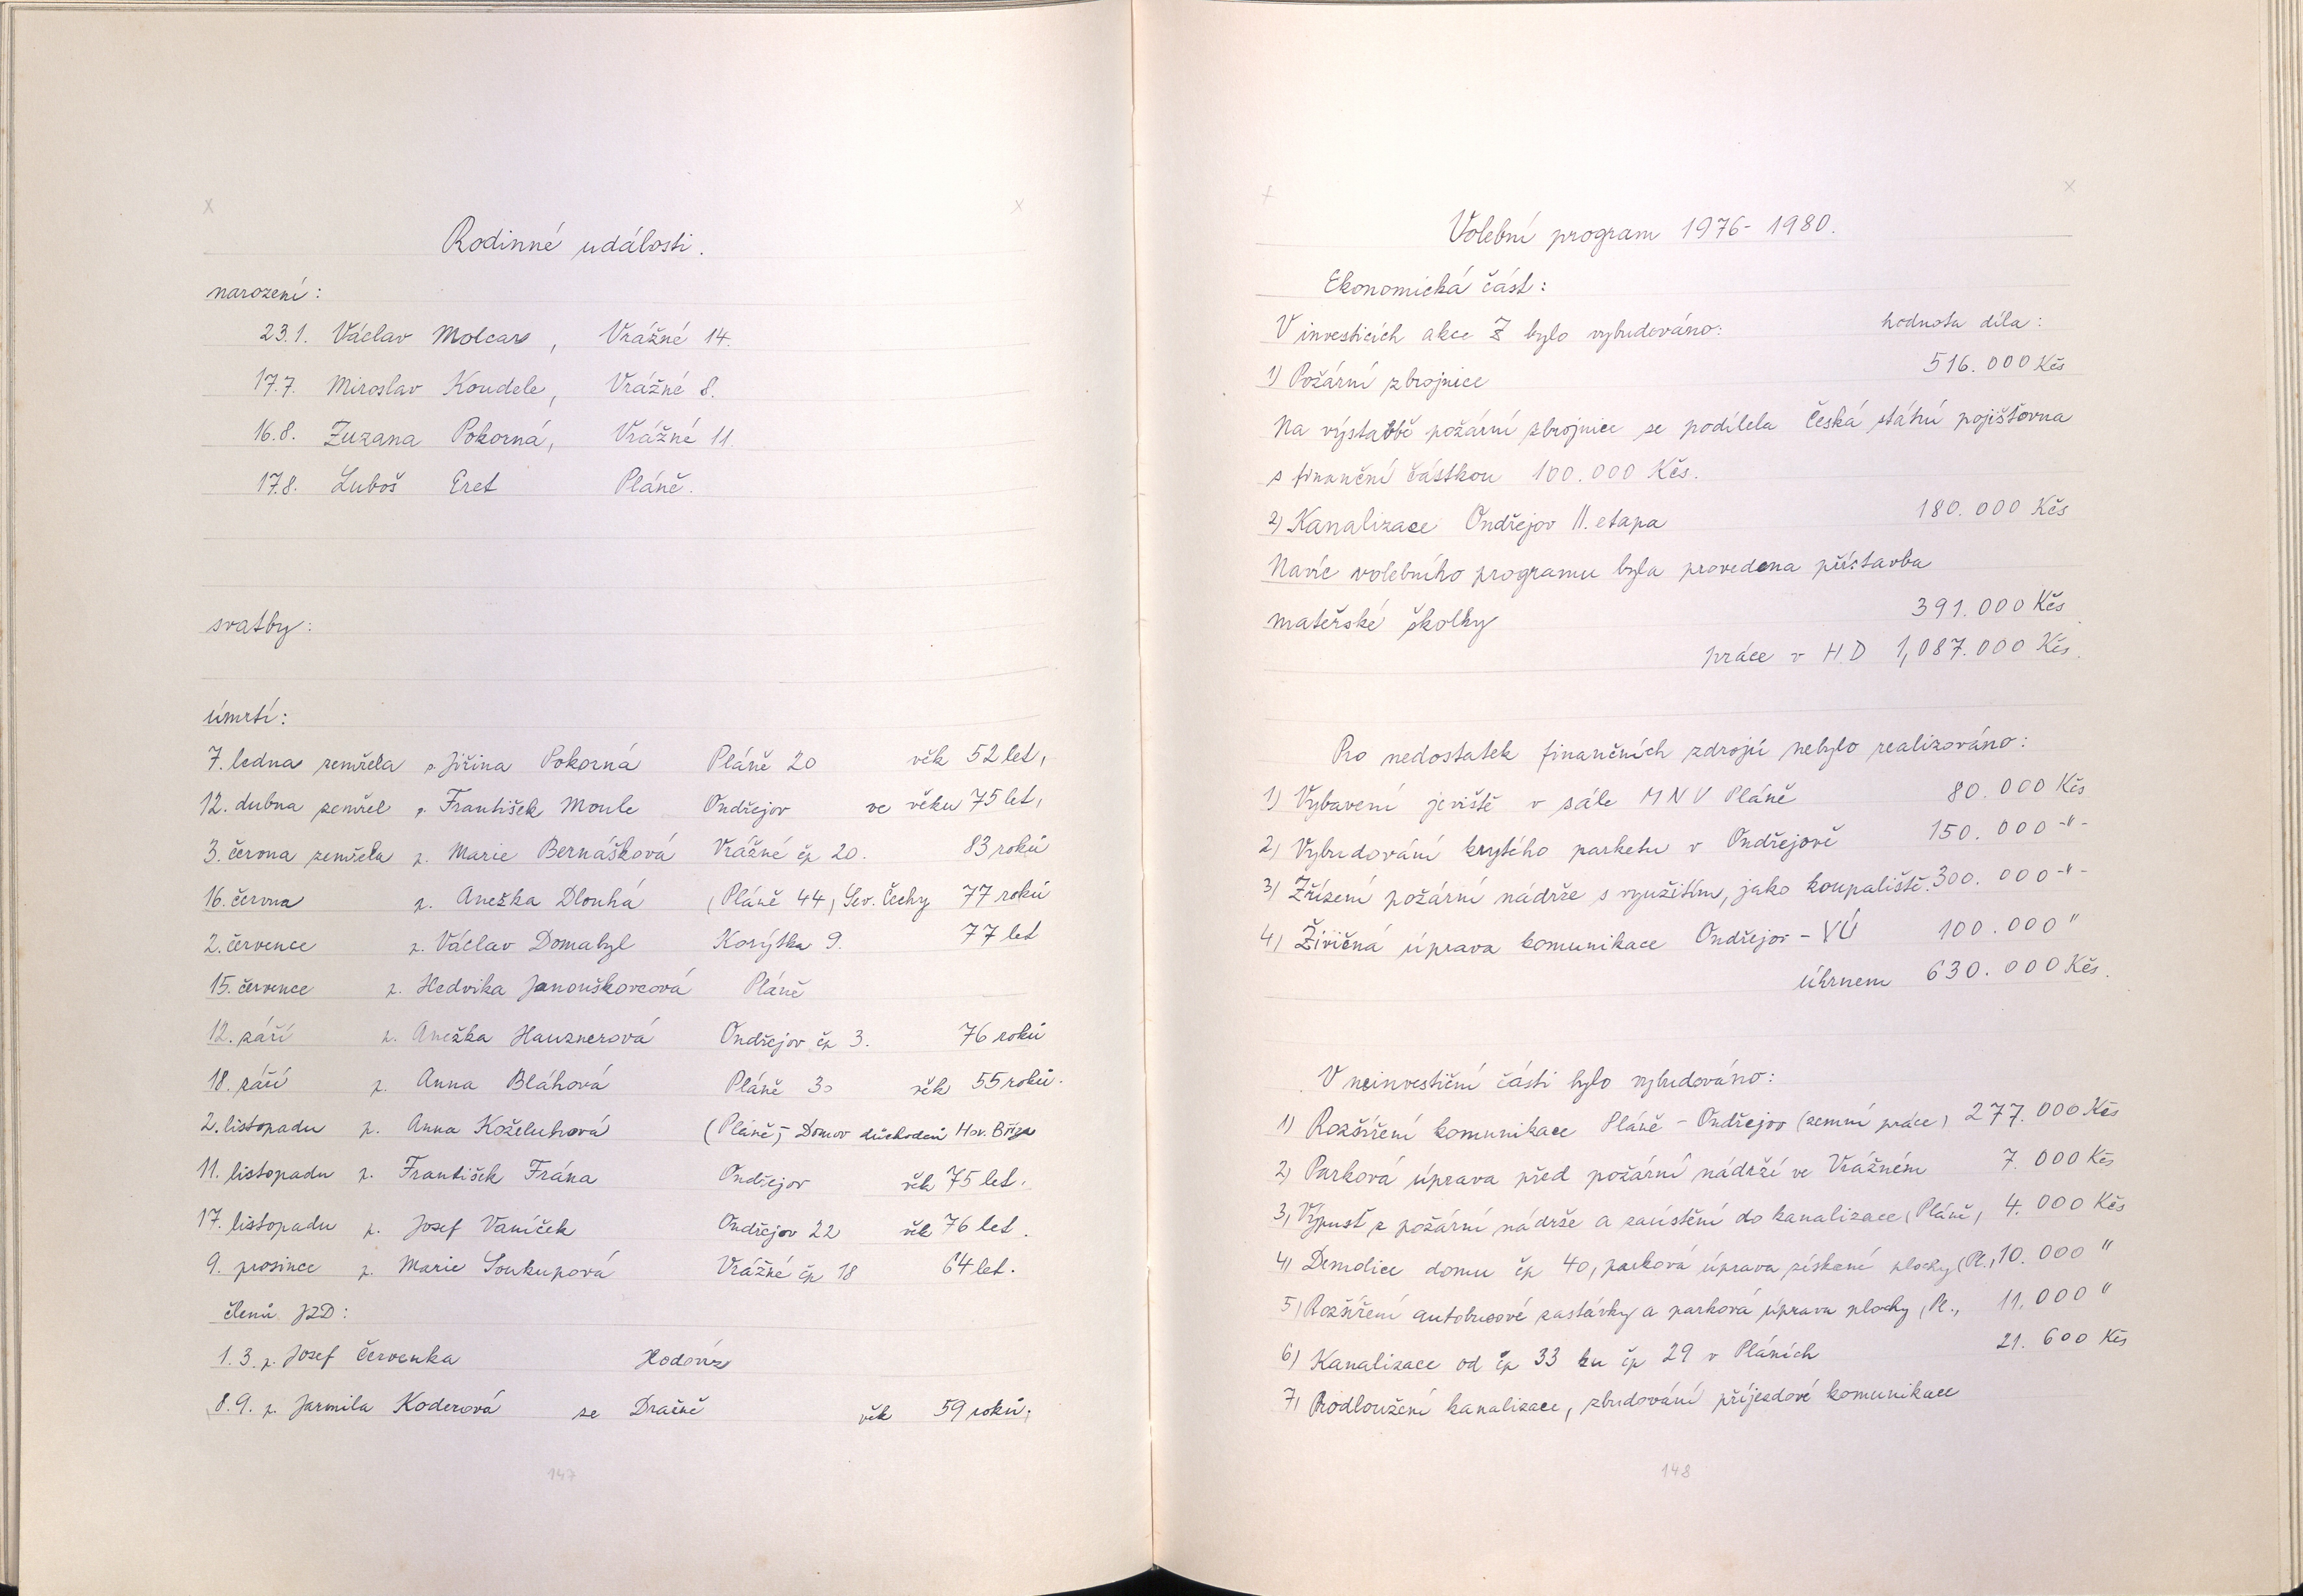 Rodinné události.
narození:
23.1. Václav Molcar, Vrážné 14.
17.7. Miroslav Koudele, Vrážné 8.
16.8. Zuzana Pokorná, Vrážné 11.
17.8. Luboš Eret Pláně.
svatby:
úmrtí:
7. ledna zemřela p. Jiřina Pokorná Pláně 20 věk 52 let,
12. dubna zemřel p. František Moule Ondřejov ve věku 75 let,
3. června zemřela p. Marie Bernášková Vrážné čp 20. 83 roků
16. června p. Anežka Dlouhá (Pláně 44) Sev. Čechy 77 roků
2. července p. Václav Domabyl Korýtka 9. 77 let
15. července p. Hedvika Janouškovcová Pláně
12. září p. Anežka Hausnerová Ondřejov čp 3. 76 roků
18. září p. Anna Bláhová Pláně 30 věk 55 roků.
2. listopadu p. Anna Koželuhová (Pláně,- Domov důchodců Hor. Bříza
11. listopadu p. František Frána Ondřejov věk 75 let.
17. listopadu p. Josef Vaníček Ondřejov 22 věk 76 let.
9. prosince p. Marie Soukupová Vrážné čp 18 64 let.
členů JZD:
1.3. p. Josef Červenka Hodovíz
8.9. p. Jarmila Koderová ze Dračně věk 59 roků;
147
Volební program 1976-1980.
Ekonomická část:
V investicích akce Z bylo vybudováno: hodnota díla:
1) Požární zbrojnice 516.000 Kčs
Na výstavbě požární zbrojnice se podílela Česká státní pojišťovna
s finanční částkou 100.000 Kčs.
2) Kanalizace Ondřejov II. etapa 180.000 Kčs
Navíc volebního programu byla provedena přístavba
mateřské školky 391.000 Kčs
práce v H.D 1,087.000 Kčs.
Pro nedostatek finančních zdrojů nebylo realizováno:
1) Vybavení jeviště v sále MNV Pláně 80.000 Kčs
2) Vybudování krytého parketu v Ondřejově 150.000 -"-
3) Zřízení požární nádrže s využitím, jako koupaliště. 300.000 -"-
4) Živičná úprava komunikace Ondřejov - VÚ 100.000 "
úhrnem 630.000 Kčs.
V neinvestiční části bylo vybudováno:
1) Rozšíření komunikace Pláně - Ondřejov (zemní práce) 277.000 Kčs
2) Parková úprava před požární nádrží ve Vrážném 7.000 Kčs
3) Výpusť z požární nádrže a zaústění do kanalizace (Pláně) 4.000 Kčs
4) Demolice domu čp 40, parková úprava získané plochy (Pl.) 10.000 "
5) Rozšíření autobusové zastávky a parková úprava plochy (Pl.) 11.000 "
6) Kanalizace od čp 33 ku čp 29 v Pláních 21.600 Kčs
7) Prodloužení kanalizace, zbudování příjezdové komunikace
148